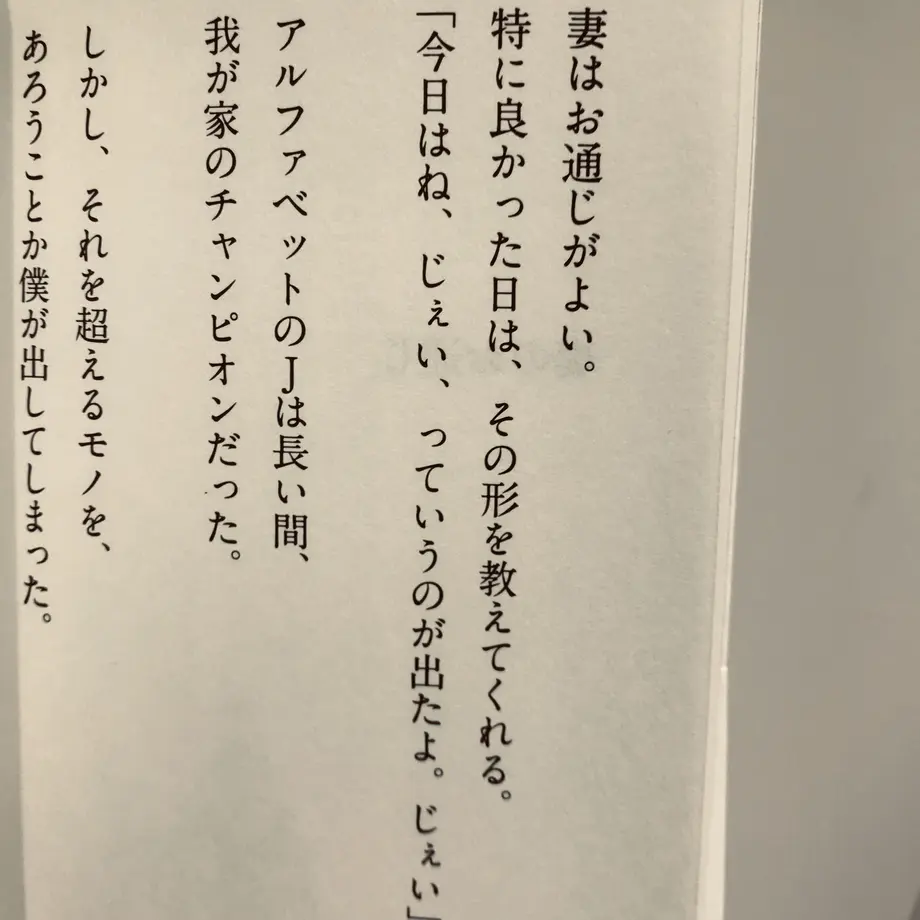 妻はお通じがよい。
特に良かった日は、その形を教えてくれる。
「今日はね、じぇい、っていうのが出たよ。じぇい」
アルファベットのJは長い間、
我が家のチャンピオンだった。
しかし、それを超えるモノを、
あろうことか僕が出してしまった。